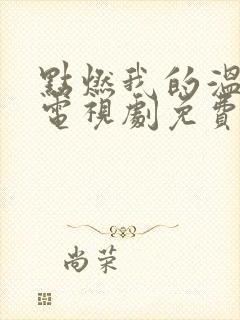 點燃我的溫
電視劇免費
尚荣